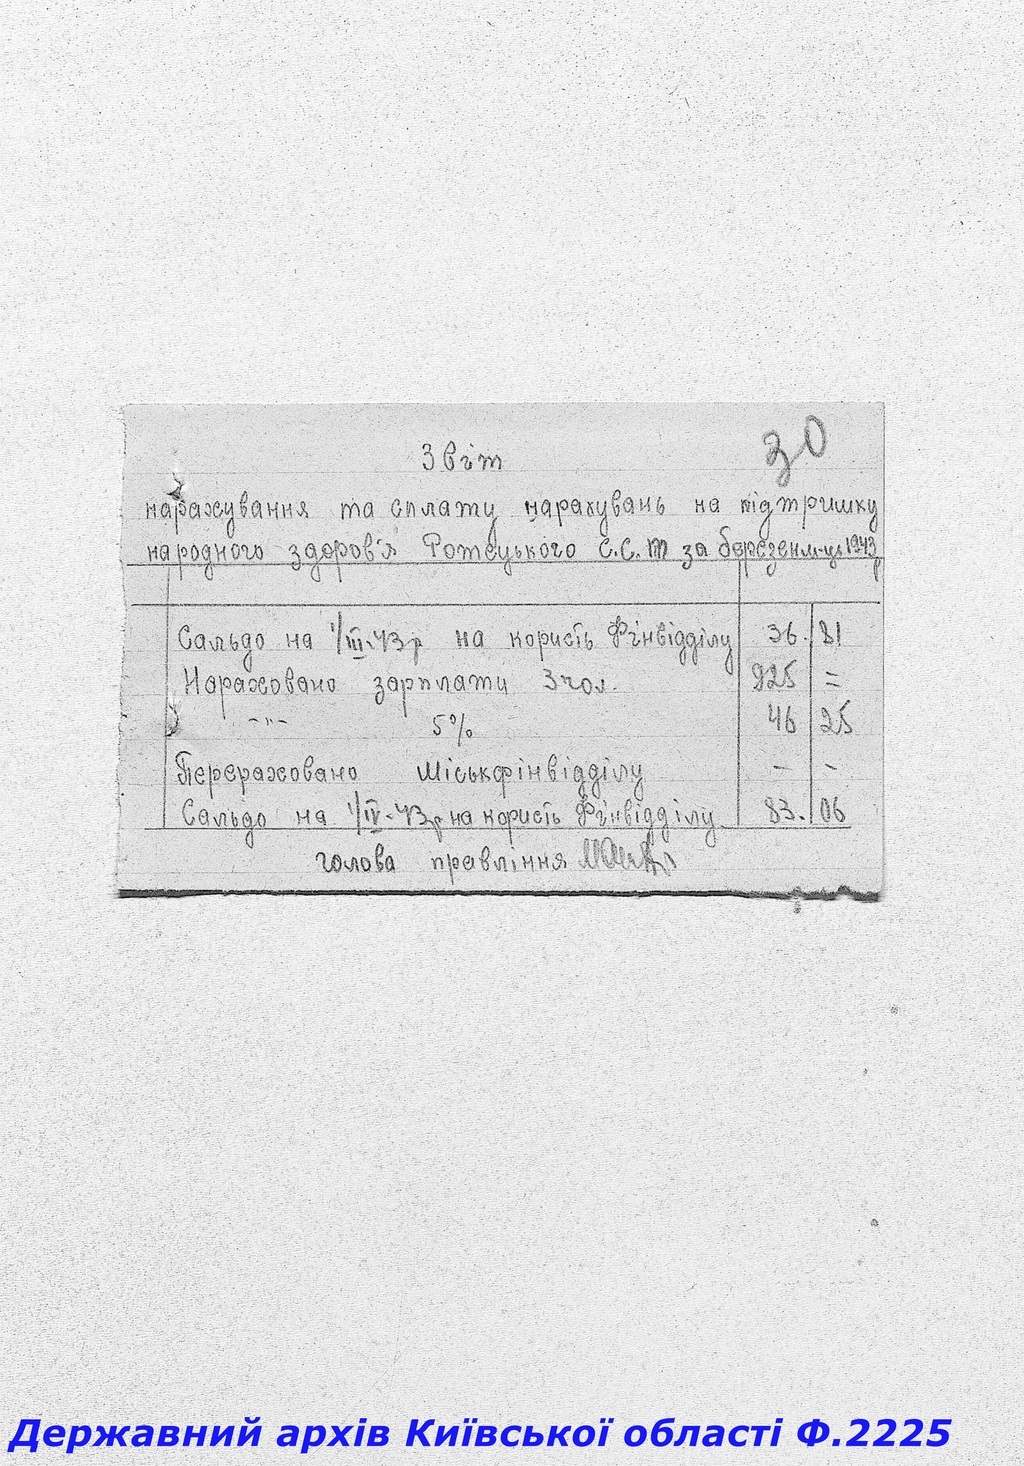 30
Звіт
нарахування та сплати нарахувань на підтримку
народного здоров'я Ротецького С.С.Т за березень м-ць 1943 р
Сальдо на 1/III-43р на користь Фінвідділу 36. 81
Нараховано зарплати 3 чол. 925 =
-"- 5% 46 25
Перераховано Міськфінвідділу - -
Сальдо на 1/IV-43р на користь Фінвідділу 83. 06
голова правління
Державний архів Київської області Ф.2225